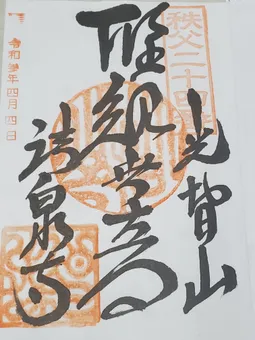 秩父二十四番
光智山
聖観世音
法泉寺
令和 年四月四日